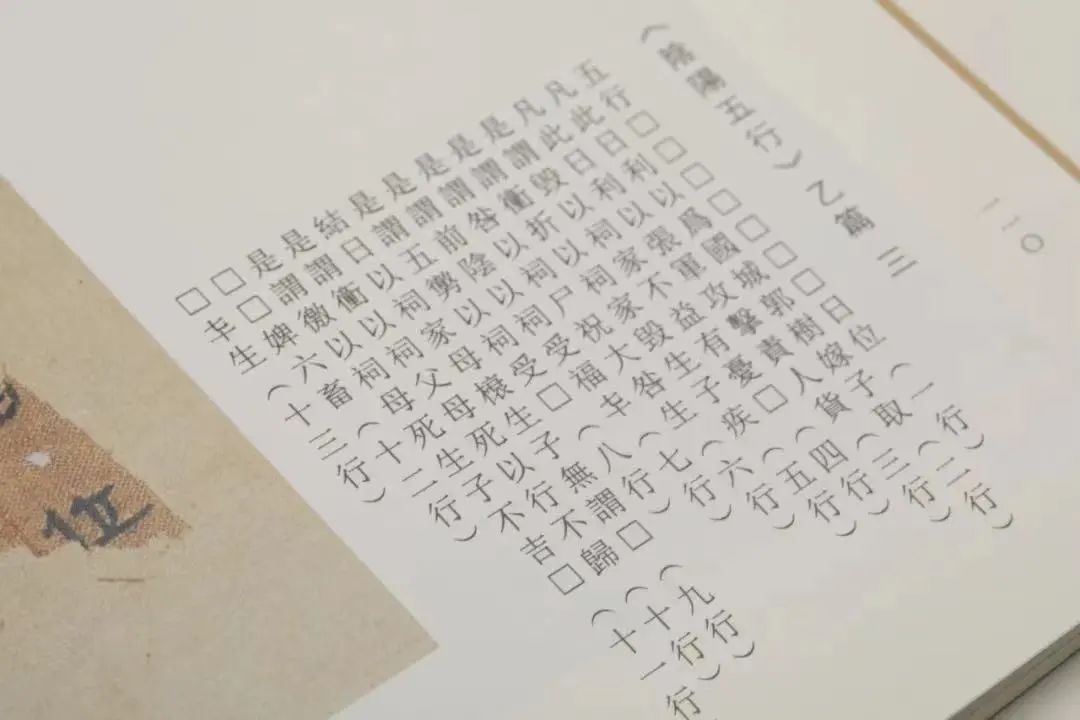 一一〇
《陰陽五行》乙篇 三
五行□□□□□□□日位（一行）
凡此日利以爲國城郭樹嫁子取（二行）
凡此日利以張軍攻擊責人貨（三行）
是謂毀以祠家不益有憂□（四行）
是謂衝折以祠家毀生子疾（五行）
是謂咎以祠尸祝大咎生（六行）
是謂前陰以祠受福丯（七行）
是謂五勶以祠受□（八行）
結日以祠家母樧生子無謂□（九行）
是謂衝以祠父母死以行不歸（十行）
是謂徼以祠母死生子不吉□（十一行）
□□婢六畜（十二行）
□丯生（十三行）
位